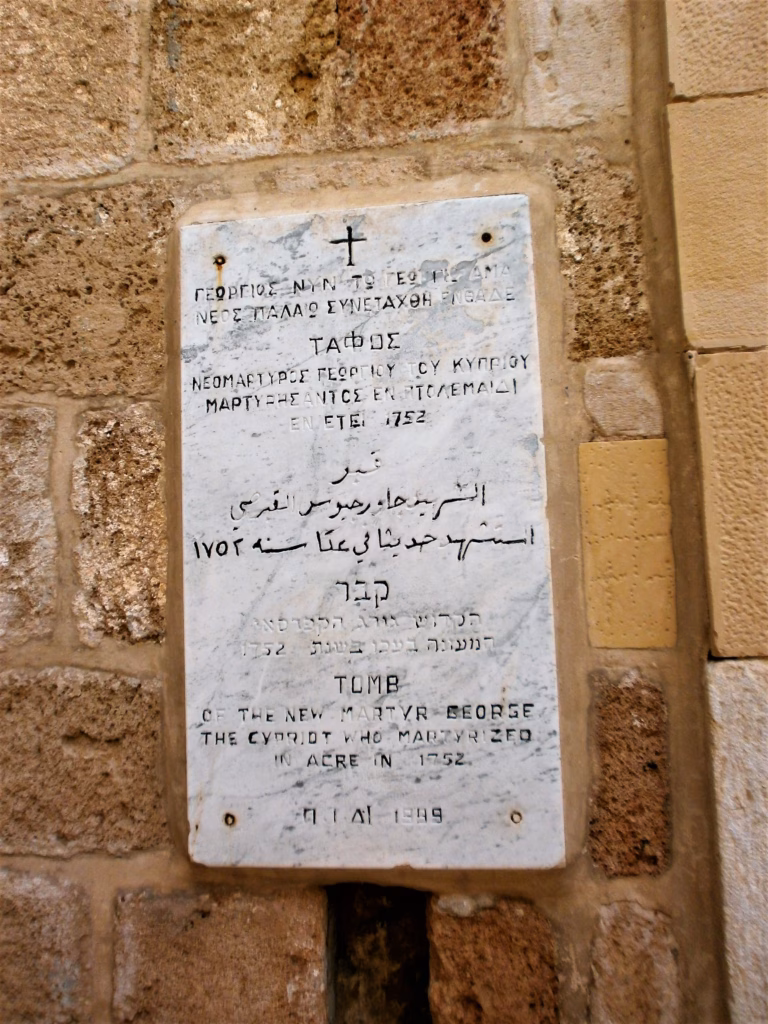 ΓΕΩΡΓΙΟΣ ΝΥΝ ΤΩ ΓΕΩΡΓΙΩ ΑΜΑ
ΝΕΟΣ ΠΑΛΑΙΩ ΣΥΝΕΤΑΧΘΗ ΕΝΘΑΔΕ
ΤΑΦΟΣ
ΝΕΟΜΑΡΤΥΡΟΣ ΓΕΩΡΓΙΟΥ ΤΟΥ ΚΥΠΡΙΟΥ
ΜΑΡΤΥΡΗΣΑΝΤΟΣ ΕΝ ΠΤΟΛΕΜΑΙΔΙ
ΕΝ ΕΤΕΙ 1752
قبر
الشهيد جاورجيوس القبرصي
استشهد حديثا في عكا سنه ١٧٥٢
קבר
הקדוש גורג הקפרסאי
המעונה בעכו בשנת 1752
TOMB
OF THE NEW MARTYR GEORGE
THE CYPRIOT WHO MARTYRIZED
IN ACRE IN 1752